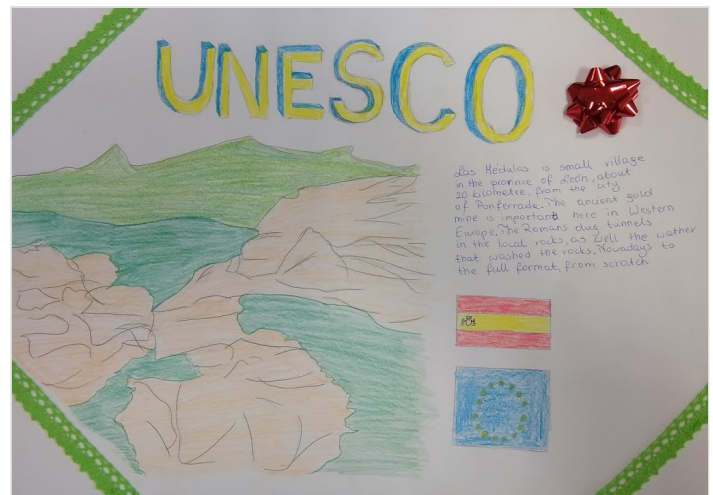 UNESCO
Las Médulas is small village
in the province of León, about
20 kilometre, from the city
of Ponferrada. The ancient gold
mine is important here in Western
Europe, The Romans dug tunnels
in the local rocks, as well the wather
that washed the rocks. Nowadays to
the full format, from scratch